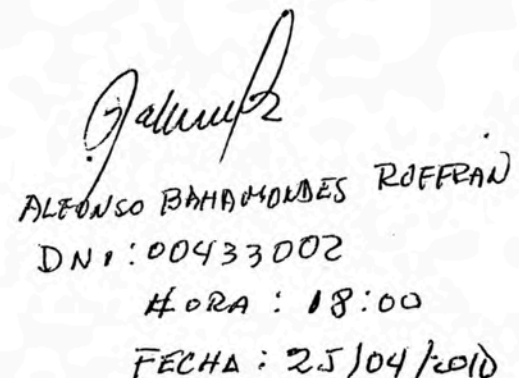 ALFONSO BAHAMONDES ROFFRAN
DNI: 00433002
HORA : 18:00
FECHA : 25/04/2010